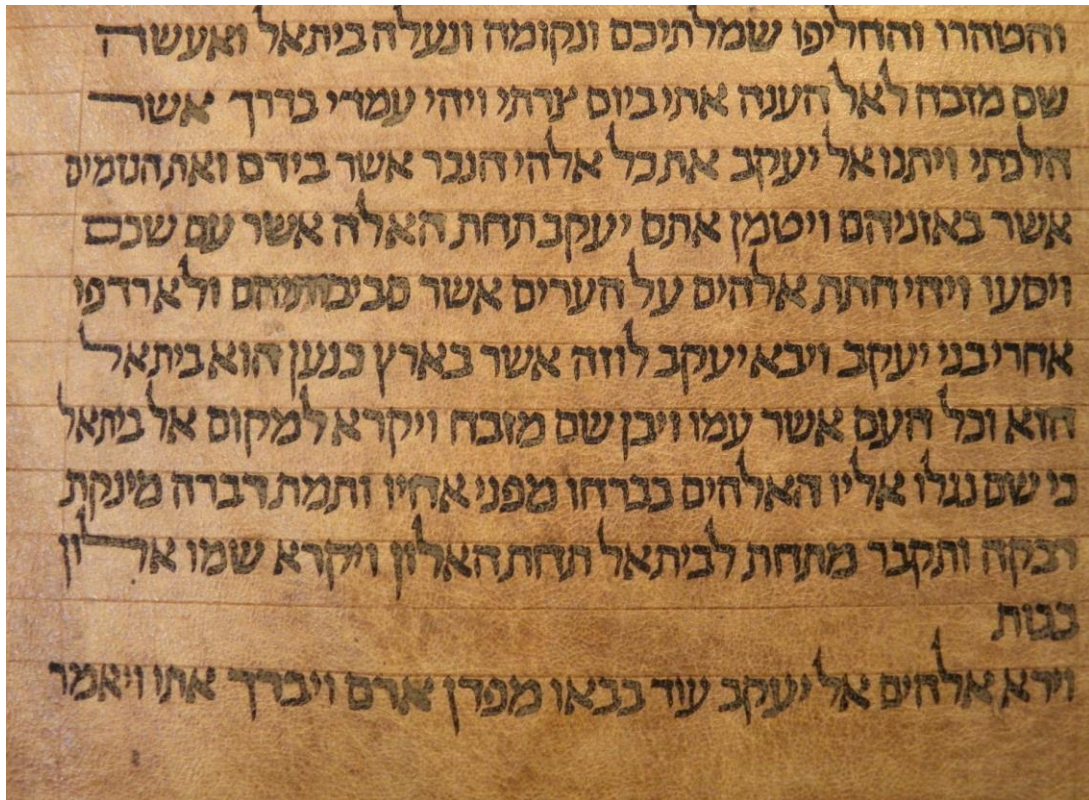 והטהרו והחליפו שמלתיכם ונקומה ונעלה ביתאל ואעשה
שם מזבח לאל הענה אתי ביום צרתי ויהי עמדי בדרך אשר
הלכתי ויתנו אל יעקב את כל אלהי הנכר אשר בידם ואת הנזמים
אשר באזניהם ויטמן אתם יעקב תחת האלה אשר עם שכם
ויסעו ויהי חתת אלהים על הערים אשר סביבותיהם ולא רדפו
אחרי בני יעקב ויבא יעקב לוזה אשר בארץ כנען הוא ביתאל
הוא וכל העם אשר עמו ויבן שם מזבח ויקרא למקום אל ביתאל
כי שם נגלו אליו האלהים בברחו מפני אחיו ותמת דברה מינקת
רבקה ותקבר מתחת לביתאל תחת האלון ויקרא שמו אלון
בכות
וירא אלהים אל יעקב עוד בבאו מפדן ארם ויברך אתו ויאמר